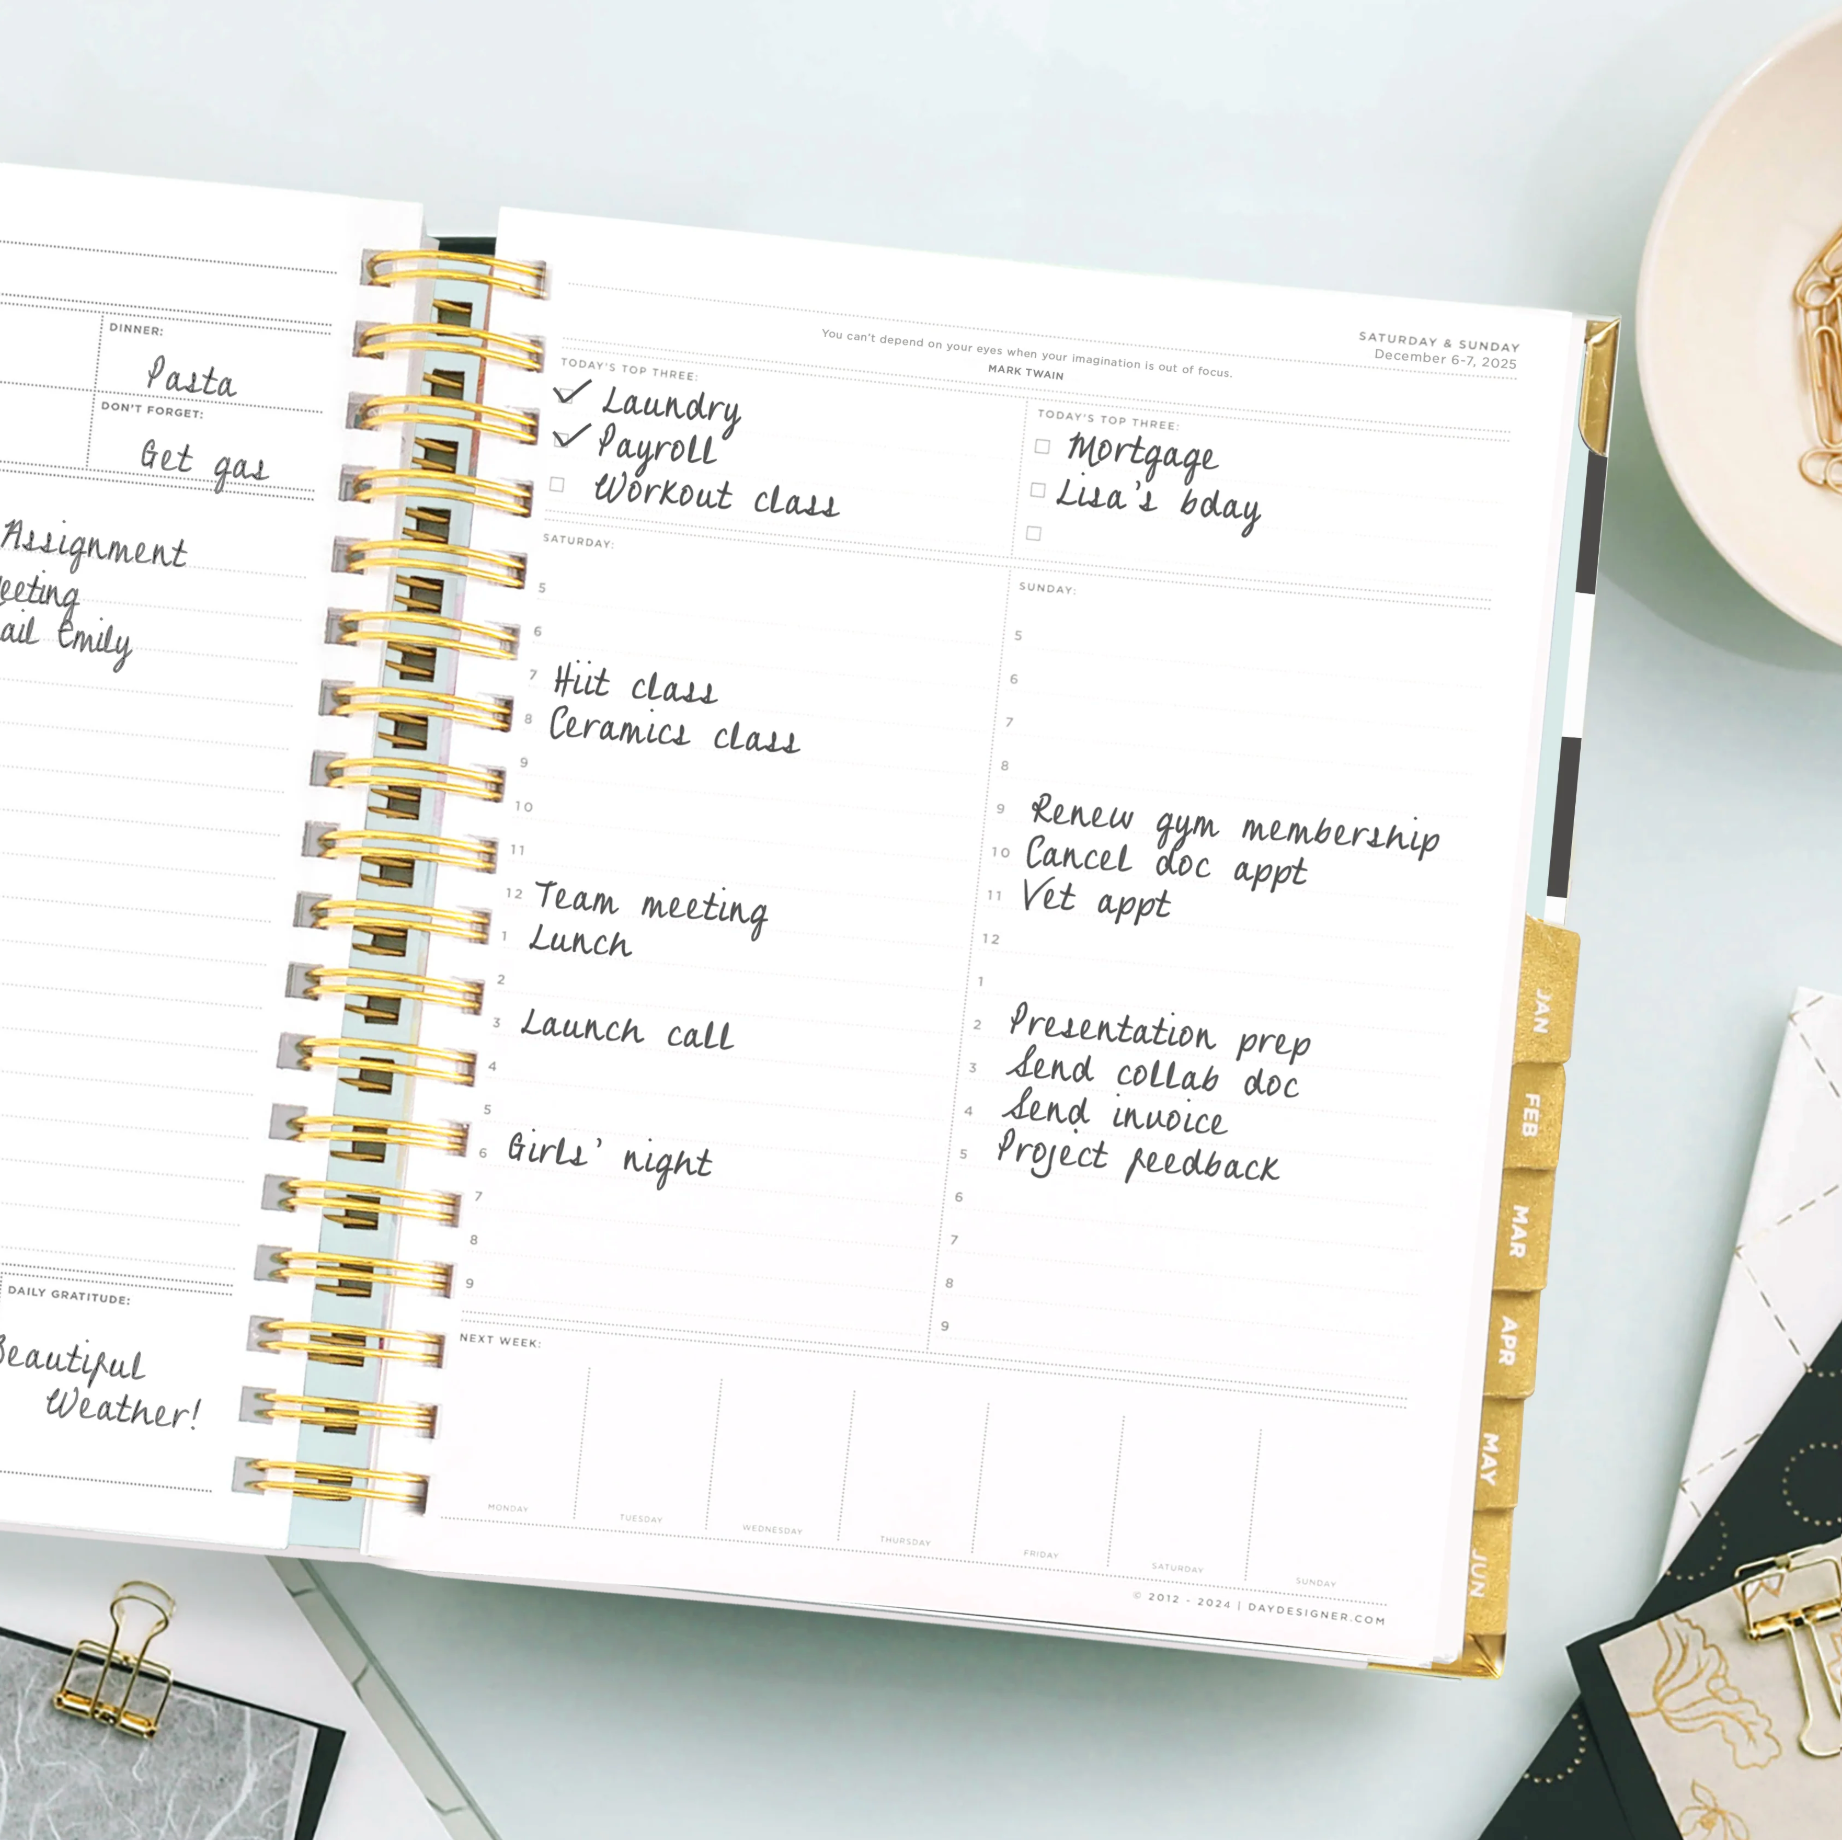 DINNER:
Pasta
DON'T FORGET:
Get gas
Assignment
Emily
DAILY GRATITUDE:
Beautiful
Weather!
SATURDAY & SUNDAY
December 6-7, 2025
You can't depend on your eyes when your imagination is out of focus.
MARK TWAIN
TODAY'S TOP THREE:
Laundry
Payroll
Workout class
TODAY'S TOP THREE:
Mortgage
Lisa's bday
SATURDAY:
5
6
7 Hiit class
8 Ceramics class
9
10
11
12 Team meeting
1 Lunch
2
3 Launch call
4
5
6 Girls' night
7
8
9
SUNDAY:
5
6
7
8
9 Renew gym membership
10 Cancel doc appt
11 Vet appt
12
1
2 Presentation prep
3 Send collab doc
4 Send invoice
5 Project feedback
6
7
8
9
NEXT WEEK:
MONDAY
TUESDAY
WEDNESDAY
THURSDAY
FRIDAY
SATURDAY
SUNDAY
© 2012 - 2024 | DAYDESIGNER.COM
JAN
FEB
MAR
APR
MAY
JUN